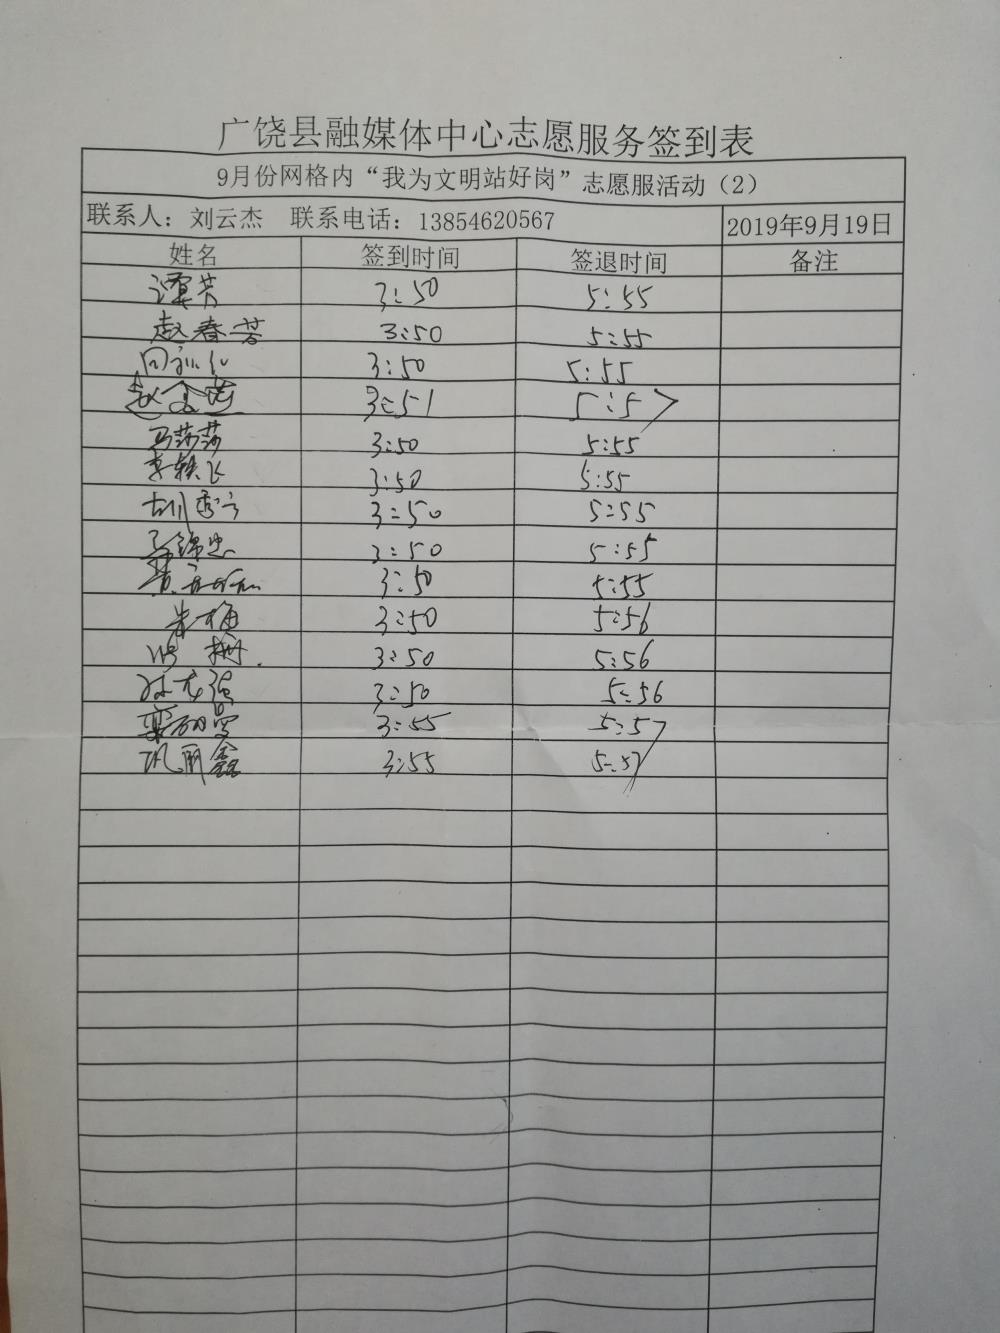 广饶县融媒体中心志愿服务签到表
9月份网格内“我为文明站好岗”志愿服活动（2）
联系人：刘云杰 联系电话：13854620567 2019年9月19日
姓名 签到时间 签退时间 备注
谭芳 3:50 5:55
赵春芳 3:50 5:55
3:50 5:55
3:51 5:57
马莎莎 3:50 5:55
李轶飞 3:50 5:55
3:50 5:55
3:50 5:55
3:50 5:55
朱梅 3:50 5:56
3:50 5:56
3:50 5:56
3:55 5:57
巩丽鑫 3:55 5:57